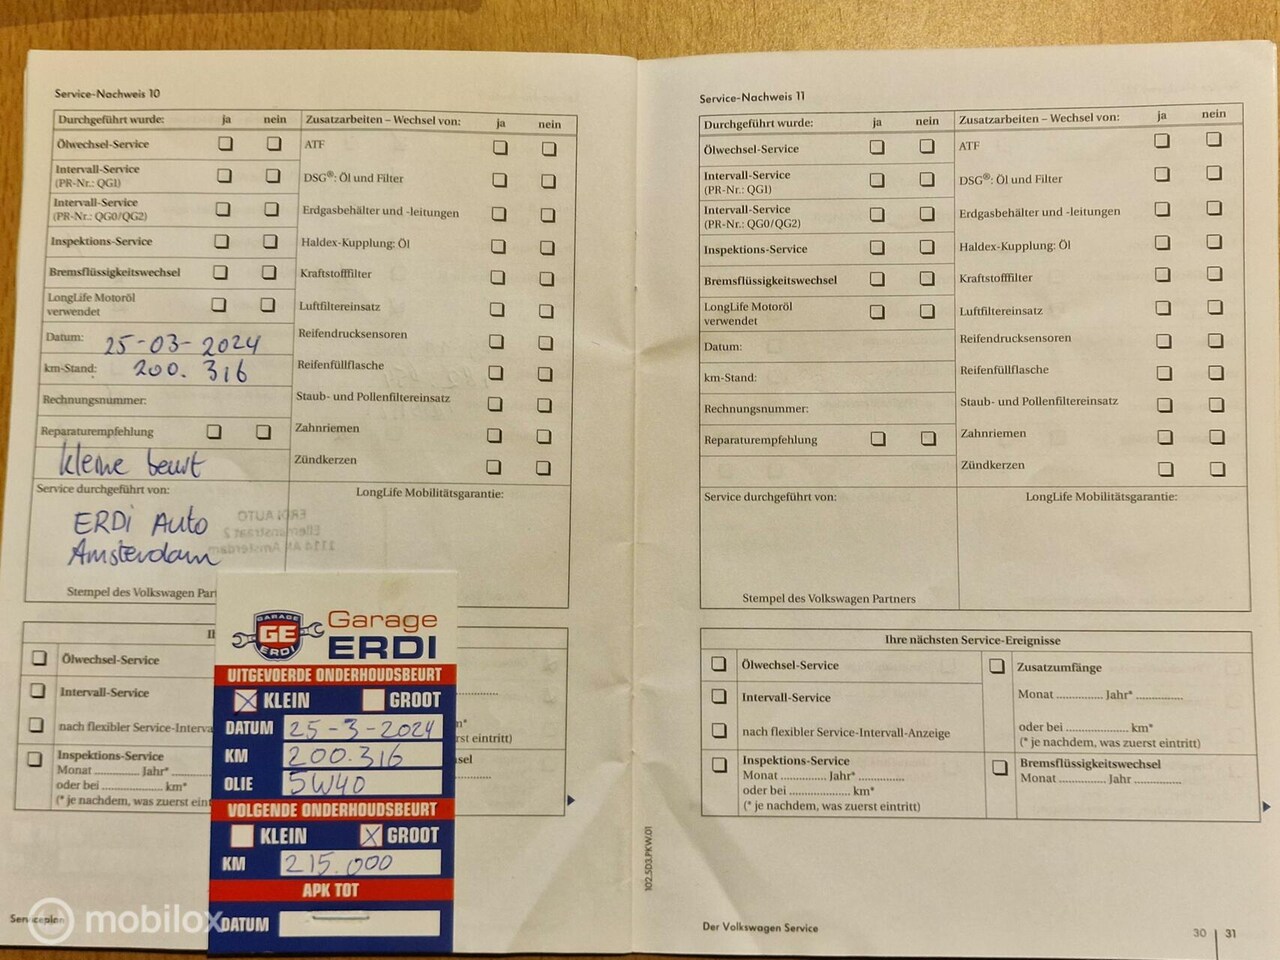 Service-Nachweis 10
Durchgeführt wurde: ja nein
Ölwechsel-Service
Intervall-Service
(PR-Nr.: QG1)
Intervall-Service
(PR-Nr.: QG0/QG2)
Inspektions-Service
Bremsflüssigkeitswechsel
LongLife Motoröl
verwendet
Datum: 25-03-2024
km-Stand: 200.316
Rechnungsnummer:
Reparaturempfehlung
kleine beurt
Service durchgeführt von:
ERDi Auto
Amsterdam
Zusatzarbeiten – Wechsel von: ja nein
ATF
DSG®: Öl und Filter
Erdgasbehälter und -leitungen
Haldex-Kupplung: Öl
Kraftstofffilter
Luftfiltereinsatz
Reifendrucksensoren
Reifenfüllflasche
Staub- und Pollenfiltereinsatz
Zahnriemen
Zündkerzen
LongLife Mobilitätsgarantie:
ERDI AUTO
Stempel des Volkswagen Par
Ölwechsel-Service
Intervall-Service
nach flexibler Service-Interva
Inspektions-Service
Monat ............ Jahr* .........
oder bei .................. km*
(* je nachdem, was zuerst eint
st eintritt)
sel
Garage
ERDI
GARAGE
GE
ERDI
UITGEVOERDE ONDERHOUDSBEURT
KLEIN GROOT
DATUM 25-3-2024
KM 200.316
OLIE 5W40
VOLGENDE ONDERHOUDSBEURT
KLEIN GROOT
KM 215.000
APK TOT
DATUM
Serviceplan
mobilox
Service-Nachweis 11
Durchgeführt wurde: ja nein
Ölwechsel-Service
Intervall-Service
(PR-Nr.: QG1)
Intervall-Service
(PR-Nr.: QG0/QG2)
Inspektions-Service
Bremsflüssigkeitswechsel
LongLife Motoröl
verwendet
Datum:
km-Stand:
Rechnungsnummer:
Reparaturempfehlung
Service durchgeführt von:
Stempel des Volkswagen Partners
Zusatzarbeiten – Wechsel von: ja nein
ATF
DSG®: Öl und Filter
Erdgasbehälter und -leitungen
Haldex-Kupplung: Öl
Kraftstofffilter
Luftfiltereinsatz
Reifendrucksensoren
Reifenfüllflasche
Staub- und Pollenfiltereinsatz
Zahnriemen
Zündkerzen
LongLife Mobilitätsgarantie:
Ihre nächsten Service-Ereignisse
Ölwechsel-Service
Intervall-Service
nach flexibler Service-Intervall-Anzeige
Inspektions-Service
Monat ............ Jahr* ............
oder bei .................. km*
(* je nachdem, was zuerst eintritt)
Zusatzumfänge
Monat ............ Jahr* ............
oder bei .................. km*
(* je nachdem, was zuerst eintritt)
Bremsflüssigkeitswechsel
Monat ............ Jahr ............
102.5D3.PKW.01
Der Volkswagen Service
30 31